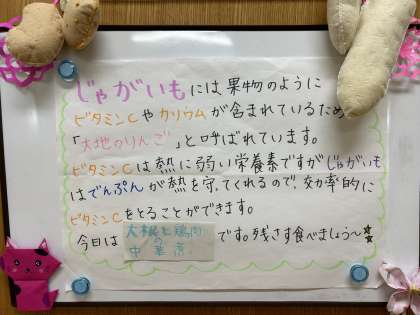 じゃがいもには果物のように
ビタミンCやカリウムが含まれているため
「大地のりんご」と呼ばれています。
ビタミンCは熱に弱い栄養素ですがじゃがいも
はでんぷんが熱を守ってくれるので、効率的に
ビタミンCをとることができます。
今日は 大根と鶏肉の中華煮 です。残さず食べましょう～